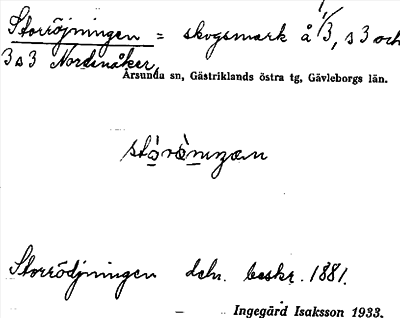 Storröjningen = skogsmark å 1/3, s 3 och
3 s 3 Nordanåker,
Årsunda sn, Gästriklands östra tg, Gävleborgs län.
Storrödjningen dchr. beskr. 1881.
Ingegärd Isaksson 1933.